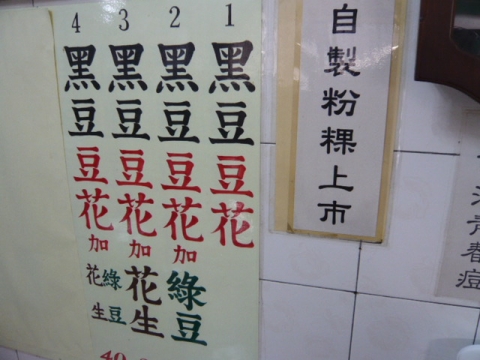 1
黑豆豆花
2
黑豆豆花加綠豆
3
黑豆豆花加花生
4
黑豆豆花加綠豆花生
40
自製粉粿上市
青春痘